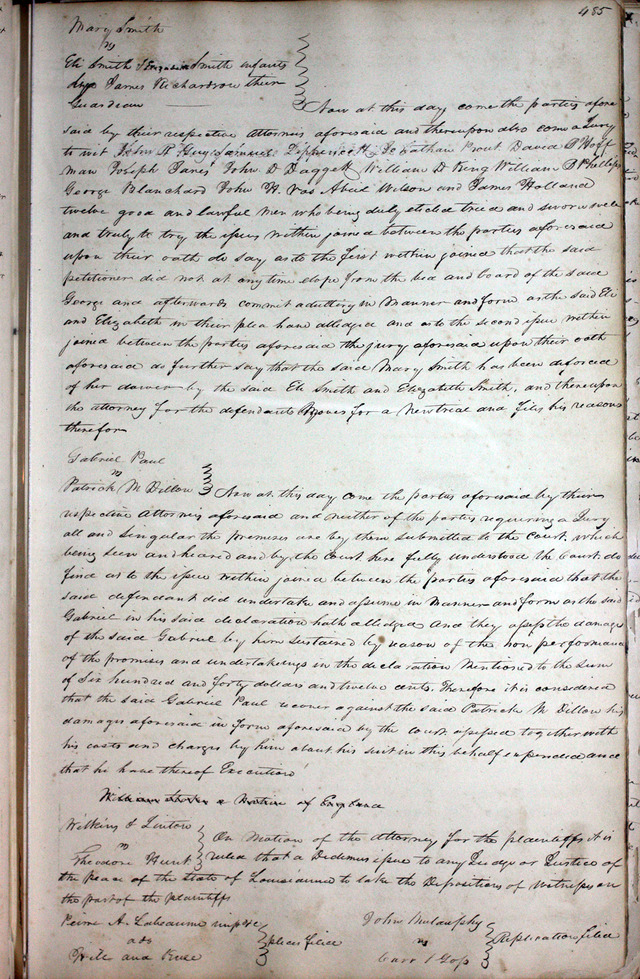 485
Mary Smith
vs
Eli Smith & Elizabeth Smith infants
by James Richardson their
Guardian
Now at this day come the parties afore
said by their respective attornies aforesaid and thereupon also come a Jury
to wit John R Guy Samuel Jonathan Prout David P Hoff
man Joseph James John D Daggett William D King William P Phillips
George Blanchard John H Vos Abiel Wilson and James Holland
twelve good and lawful men who being duly elected tried and sworn well
and truly to try the issues within joined between the parties aforesaid
upon their oath do say as to the first within joined that the said
petitioner did not at any time elope from the bed and board of the said
George and afterwards commit adultery in manner and form as the said Eli
and Elizabeth in their plea have alledged and as to the second issue within
joined between the parties aforesaid the jury aforesaid upon their oath
aforesaid as further say that the said Mary Smith has been deforced
of her dower by the said Eli Smith and Elizabeth Smith, and thereupon
the attorney for the defendants moves for a new trial and files his reasons
therefor
Gabriel Paul
vs
Patrick M Dillon
Now at this day come the parties aforesaid by their
respective attornies aforesaid and neither of the parties requiring a Jury
all and singular the premises are by them submitted to the court, which
being seen and heared and by the court here fully understood the court do
find as to the issue within joined between the parties aforesaid that the
said defendant did undertake and assume in manner and form as the said
Gabriel in his said declaration hath alledged And they assess the damage
of the said Gabriel by him sustained by reason of the non performance
of the promises and undertakings in the declaration mentioned to the sum
of Six hundred and forty dollars and twelve cents. Therefore it is considered
that the said Gabriel Paul recover against the said Patrick M Dillon his
damages aforesaid in form aforesaid by the court assessed together with
his costs and charges by him about his suit in this behalf expended and
that he have thereof Execution
Wilkins & Linton
vs
Theodore Hunt
On motion of the attorney for the plaintiffs it is
ruled that a Dedimus issue to any Judge or Justice of
the peace of the state of Louisiana to take the Depositions of witnesses on
the part of the plaintiffs
Peirre A. Labeaume
ads
and
pleas filed
John
vs
Carr &
Replication filed